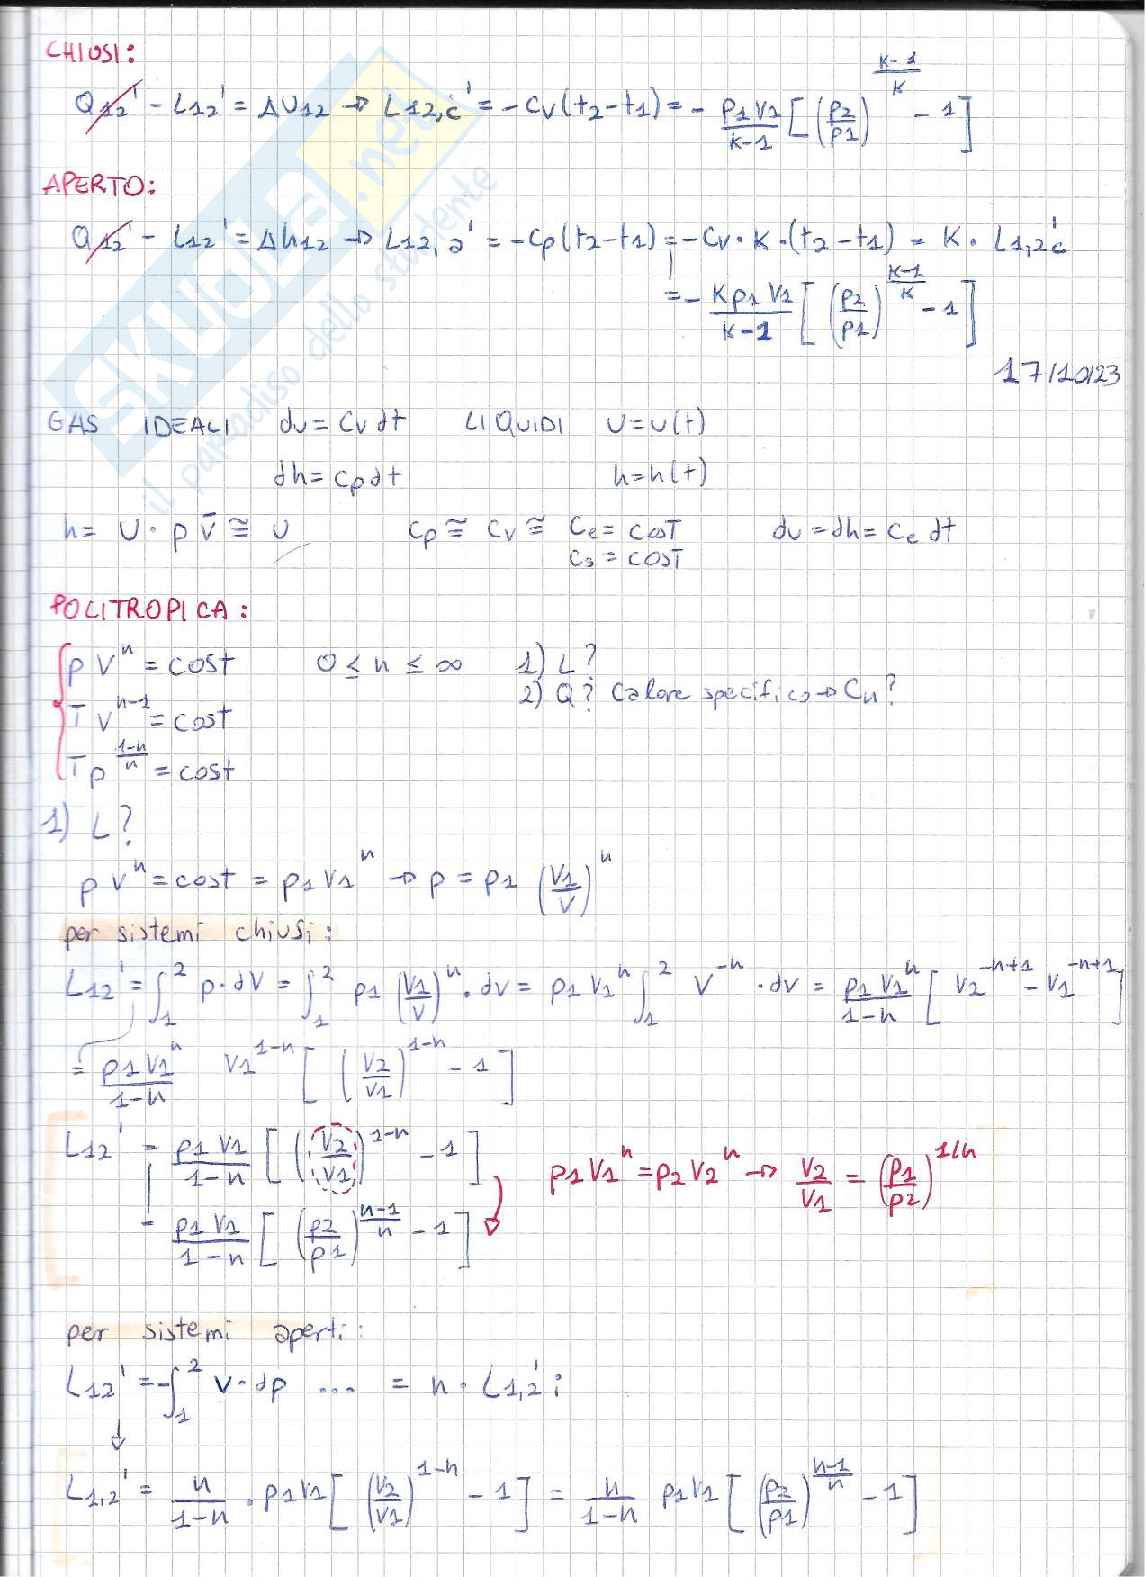 CHIUSI:
Q12' - L12' = ΔU12 → L12,i' = -Cv(t2-t1) = - p1v1/(k-1) [(p2/p1)^((k-1)/k) - 1]
APERTO:
Q12' - L12' = Δh12 → L12,a' = -Cp(t2-t1) = -Cv·K·(t2-t1) = K · L1,2'i
= - Kp1v1/(k-1) [(p2/p1)^((k-1)/k) - 1]
17/10/23
GAS IDEALI du = Cv dt LIQUIDI U = u(t)
dh = Cp dt h = h(t)
h = U · p v̄ ≅ U Cp ≅ Cv ≅ Ce = COST du = dh = Ce dt
Cs = COST
POLITROPICA:
p v^n = cost 0 ≤ n ≤ ∞ 1) L?
2) Q? Calore specifico → Cn?
T v^(n-1) = cost
T p^((1-n)/n) = cost
1) L?
p v^n = cost = p1 v1^n → p = p1 (v1/v)^n
per sistemi chiusi:
L12' = ∫1^2 p·dV = ∫1^2 p1 (v1/v)^n · dv = p1 v1^n ∫1^2 V^-n · dv = p1 v1^n/(1-n) [v2^(-n+1) - v1^(-n+1)]
= p1 v1^n/(1-n) v1^(1-n) [(v2/v1)^(1-n) - 1]
L12' = p1 v1/(1-n) [(v2/v1)^(1-n) - 1] p1 v1^n = p2 v2^n → v2/v1 = (p1/p2)^(1/n)
= p1 v1/(1-n) [(p2/p1)^((n-1)/n) - 1]
per sistemi aperti:
L12' = -∫1^2 v·dp .... = n · L1,2'i
↓
L1,2' = n/(1-n) · p1v1 [(v2/v1)^(1-n) - 1] = n/(1-n) p1v1 [(p2/p1)^((n-1)/n) - 1]
SKUOLA.net
il paradiso dello studente